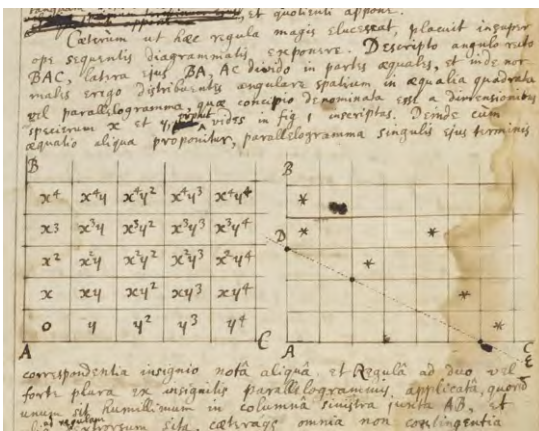 et quotienti appone.
Cæterùm ut hæc regula magis elucescat, placuit insuper
ope sequentis diagrammatis exponere. Descripto angulo recto
BAC, latera ejus BA, AC divido in partes æquales, et inde nor-
males erego distribuentes angulare spatium in æqualia quadrata
vel parallelogramma, quæ concipio denominata esse a dimensionibus
specierum x et y, prout vides in fig 1 inscriptas. Deinde cum
æquatio aliqua proponitur, parallelogramma singulis ejus terminis
B
x4 x4y x4y2 x4y3 x4y4
x3 x3y x3y2 x3y3 x3y4
x2 x2y x2y2 x2y3 x2y4
x xy xy2 xy3 xy4
0 y y2 y3 y4
A C
B
* 
* *
D
*
*
*
A C
E
correspondentia insignio notâ aliquâ, et Regulâ ad duo vel
forte plura ex insignitis parallelogrammis applicatâ, quorum
unum sit humillimum in columnâ sinistra juxta AB, et
ad regulam
dextrorsum sita, cæteraqe omnia non contingentia